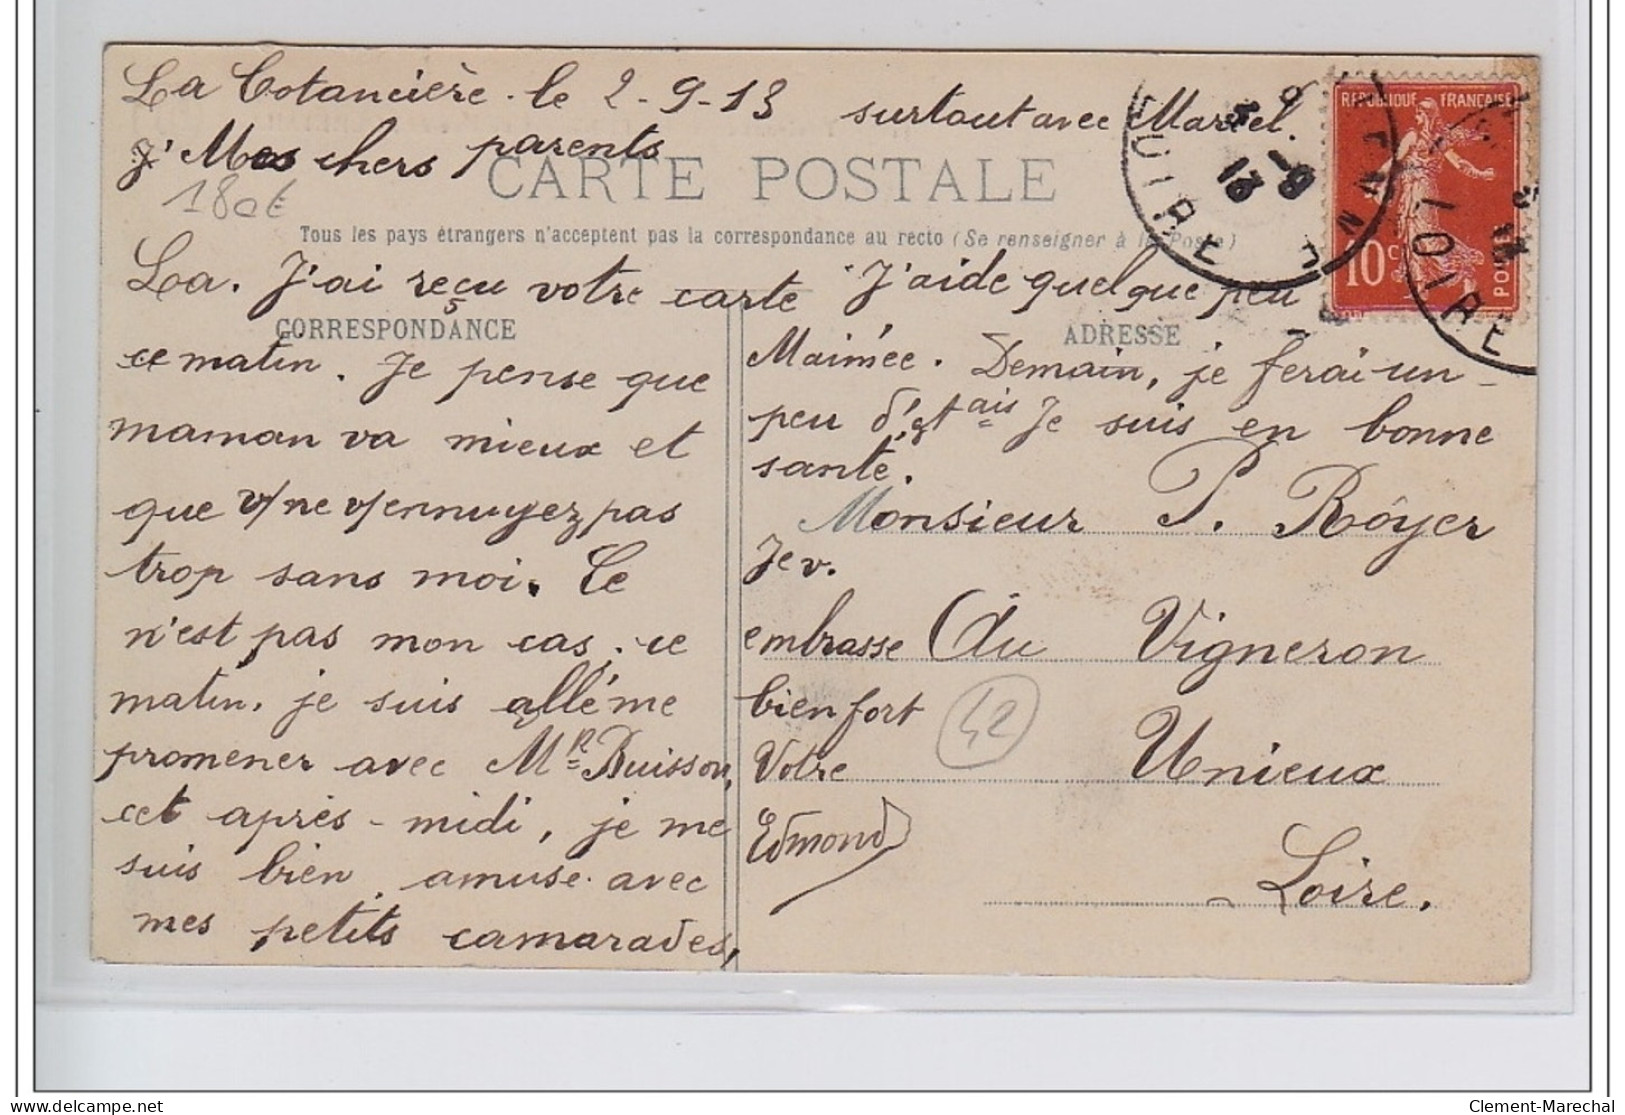 La Cotancière. le 2-9-13
J' Mes chers parents
180€
CARTE POSTALE
Tous les pays étrangers n'acceptent pas la correspondance au recto (Se renseigner à la Poste)
CORRESPONDANCE
La. J'ai reçu votre carte
ce matin. Je pense que
maman va mieux et
que v/ne v/ennuyez pas
trop sans moi. Ce
n'est pas mon cas. ce
matin. je suis allé me
promener avec Mr Buisson,
cet après-midi, je me
suis bien amusé avec
mes petits camarades,
surtout avec Marcel.
J'aide quelque peu
ADRESSE
Maimée. Demain, je ferai un
peu d' Je suis en bonne
santé.
Je v.
embrasse
bien fort
Votre
Edmond
Monsieur P. Rôyer
Au Vigneron
42
Unieux
Loire.
REPUBLIQUE FRANÇAISE
10 c
POSTES
LOIRE
13
LOIRE
Clement-Marechal